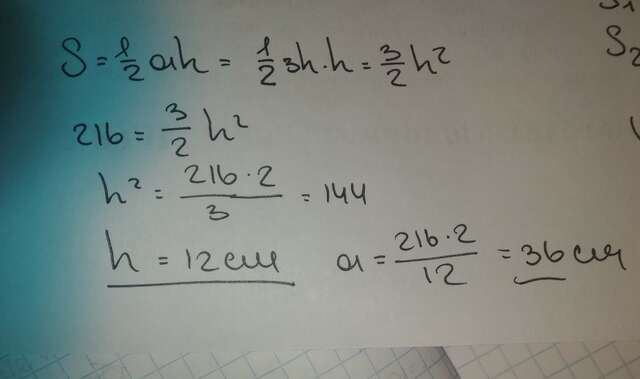 S = 1/2 ah = 1/2 3h·h = 3/2 h²
216 = 3/2 h²
h² = 216·2/3 = 144
h = 12 cm a = 216·2/12 = 36 cm
S₂